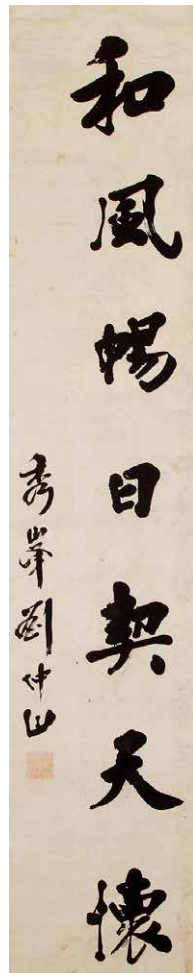 和風暢日契天懷
秀峯劉仲山